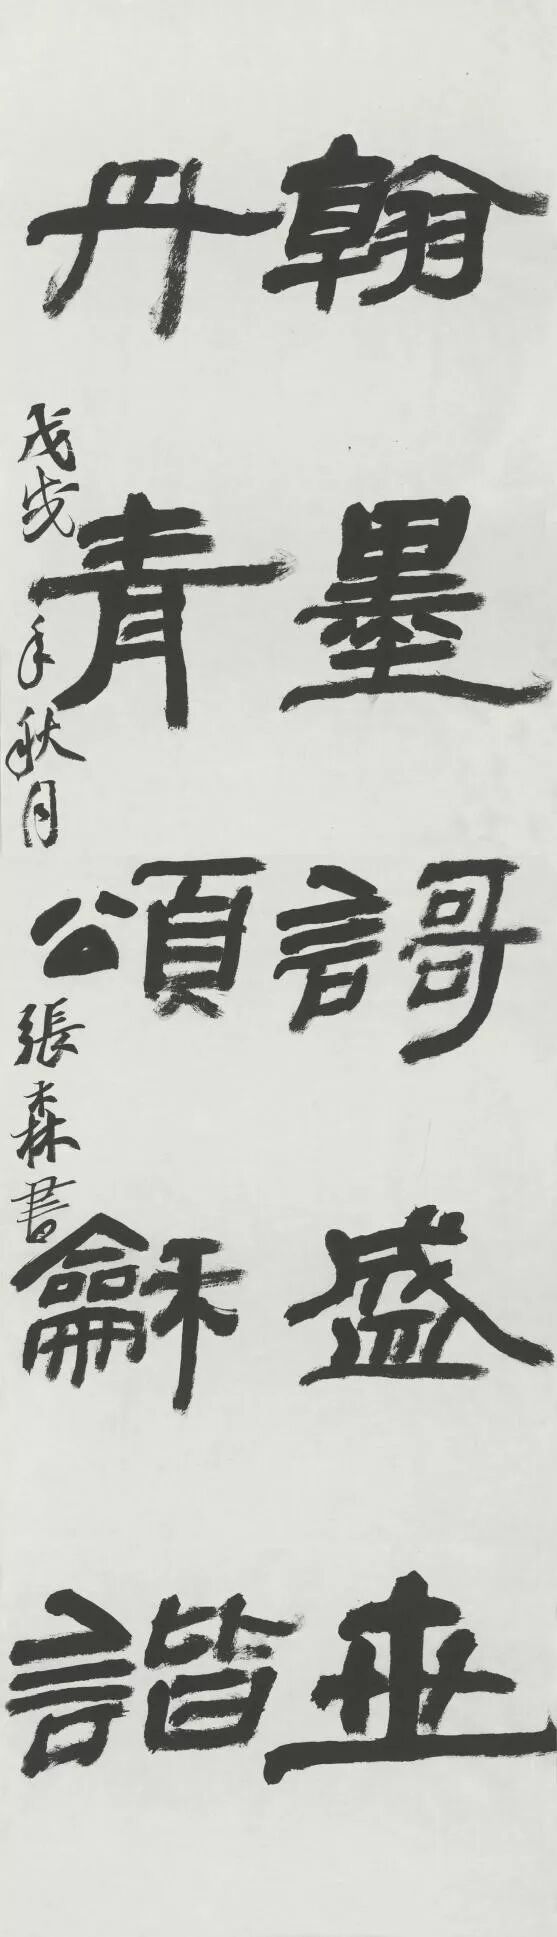 翰墨謌盛世
丹青頌龢諧
戊戌年秋月
張森書